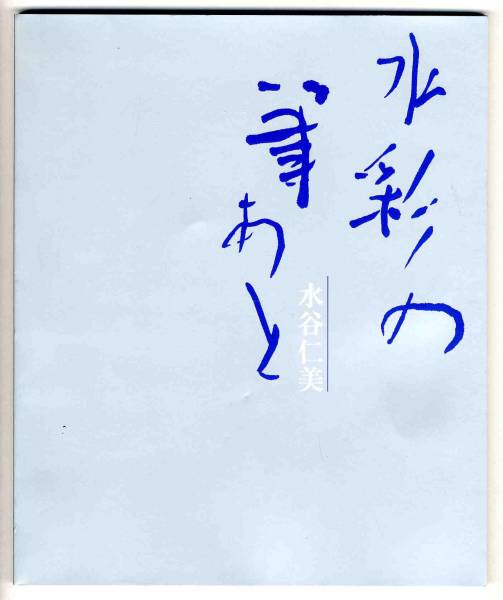 水彩の
筆あと
水谷仁美